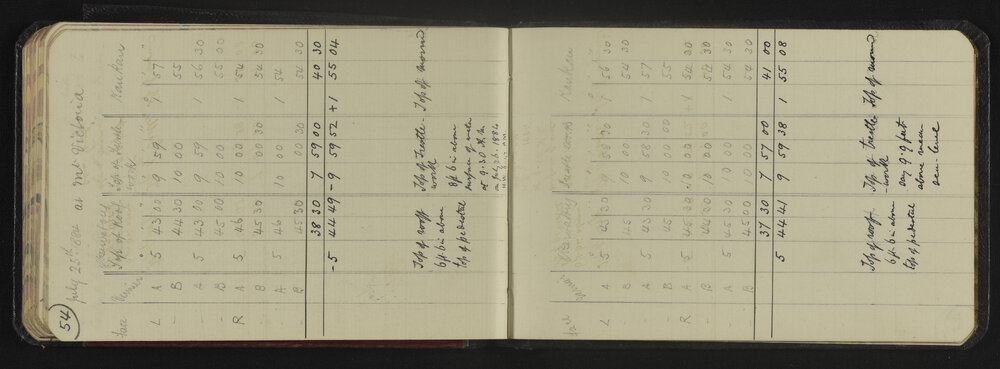 54 July 25th 1884 at Mt Victoria
face Vernier Top of Roof Top of Trestle work Kaukau
L A 5 43 00 9 59 1 57
- B 44 30 10 00 55
- A 5 43 00 9 59 1 56 30
- B 45 00 10 00 55 00
R A 5 46 10 00 1 54
B 45 30 00 30 54 30
A 5 46 10 00 1 54
B 45 30 00 30 54 30
38 30 7 59 00 40 30
-5 44 49 -9 59 52 +1 55 04
Top of roof
6ft 6in above
top of pedestal
Top of Trestle-
work
8ft 6in above
surface of water
at 9.30 A.M.
on July 26. 1884
Top of mound
face Kaukau
L A 5 43 30 9 58 30 1 56 30
- B 45 10 00 54 30
- A 5 43 30 9 58 1 57
- B 45 10 00 55
R A 5 45 30 10 00 +1 54 30
B 45 30 10 00 54 30
A 5 45 30 10 00 1 54 30
B 45 00 10 00 54 30
37 30 7 57 00 41 00
5 44 41 9 59 38 1 55 08
Top of roof
6ft 6in above
top of pedestal
Top of trestle
-work
say 9.9 feet
above mean
sea-level
Top of mound